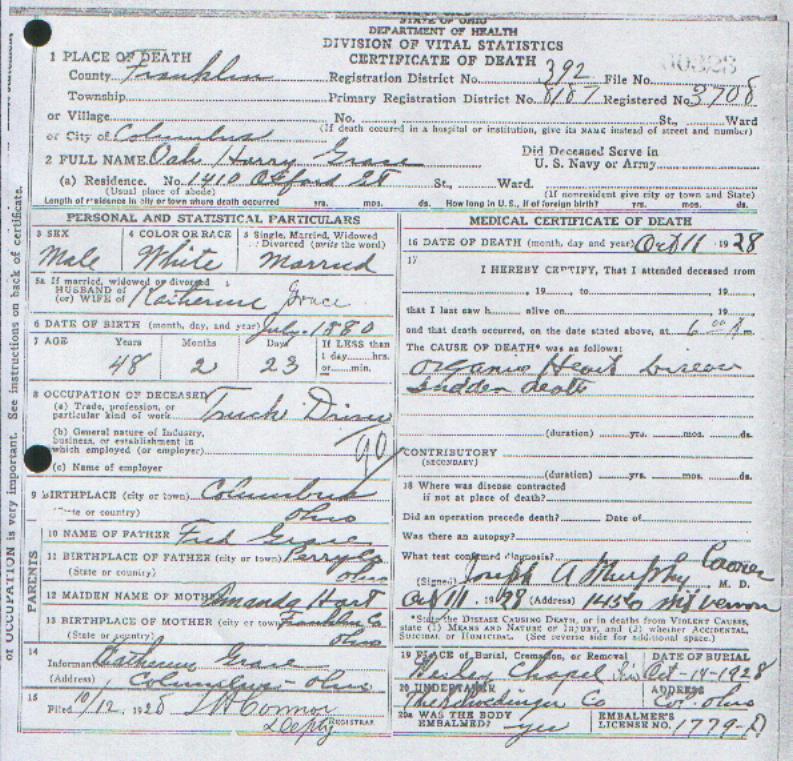 STATE OF OHIO
DEPARTMENT OF HEALTH
DIVISION OF VITAL STATISTICS
CERTIFICATE OF DEATH
1 PLACE OF DEATH
County Franklin
Registration District No. 392 File No.
Township
Primary Registration District No. 8187 Registered No. 3708
or Village
No. St., Ward
or City of Columbus
(If death occurred in a hospital or institution, give its NAME instead of street and number)
2 FULL NAME Harry Grace
Did Deceased Serve in
U. S. Navy or Army
(a) Residence. No. 1410 Oxford St St., Ward.
(Usual place of abode)
(If nonresident give city or town and State)
Length of residence in city or town where death occurred yrs. mos. ds. How long in U. S., if of foreign birth? yrs. mos. ds.
PERSONAL AND STATISTICAL PARTICULARS
3 SEX
Male
4 COLOR OR RACE
White
5 Single, Married, Widowed
or Divorced (write the word)
Married
5a If married, widowed or divorced
HUSBAND of
(or) WIFE of Katherine Grace
6 DATE OF BIRTH (month, day, and year) July 1880
7 AGE Years Months Days If LESS than
1 day hrs.
or min.
48 2 23
8 OCCUPATION OF DECEASED
(a) Trade, profession, or
particular kind of work Truck Driver
(b) General nature of Industry,
business, or establishment in
which employed (or employer)
90
(c) Name of employer
9 BIRTHPLACE (city or town) Columbus
(State or country) Ohio
PARENTS
10 NAME OF FATHER Fred Grace
11 BIRTHPLACE OF FATHER (city or town) Perry Co
(State or country) Ohio
12 MAIDEN NAME OF MOTHER Amanda Hart
13 BIRTHPLACE OF MOTHER (city or town) Franklin Co
(State or country) Ohio
14
Informant Katherine Grace
(Address) Columbus - Ohio
15
Filed 10/12, 1928 Connor
Deputy REGISTRAR
MEDICAL CERTIFICATE OF DEATH
16 DATE OF DEATH (month, day and year) Oct 11 1928
17
I HEREBY CERTIFY, That I attended deceased from
, 19 , to , 19
that I last saw h alive on , 19
and that death occurred, on the date stated above, at 6 00 A m
The CAUSE OF DEATH* was as follows:
Organic Heart
Sudden death
(duration) yrs. mos. ds.
CONTRIBUTORY
(SECONDARY)
(duration) yrs. mos. ds.
18 Where was disease contracted
if not at place of death?
Did an operation precede death? Date of
Was there an autopsy?
What test confirmed diagnosis?
(Signed) Joseph A Murphy Coroner M. D.
Oct 11, 1928 (Address) Mt Vernon
*State the DISEASE CAUSING DEATH, or in deaths from VIOLENT CAUSES,
state (1) MEANS AND NATURE OF INJURY, and (2) whether ACCIDENTAL,
SUICIDAL or HOMICIDAL. (See reverse side for additional space.)
19 PLACE of Burial, Cremation, or Removal
Wesley Chapel
DATE OF BURIAL
Oct-14-1928
20 UNDERTAKER
The Schoedinger Co
ADDRESS
Col. Ohio
20a WAS THE BODY
EMBALMED? yes
EMBALMER'S
LICENSE NO. 1779-A
of OCCUPATION is very important. See instructions on back of certificate.